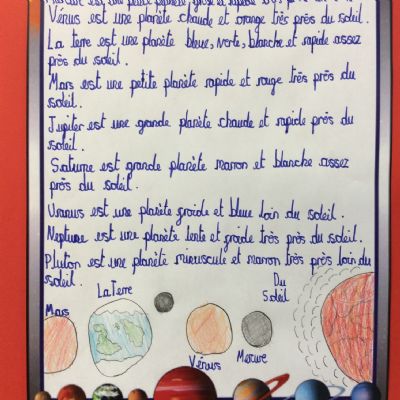 Mercure est une petite planète grise et rapide très près du soleil.
Vénus est une planète chaude et orange très près du soleil.
La terre est une planète bleue, verte, blanche et rapide assez
près du soleil.
Mars est une petite planète rapide et rouge très près du
soleil.
Jupiter est une grande planète chaude et rapide près du
soleil.
Saturne est grande planète marron et blanche assez
près du soleil.
Uranus est une planète froide et bleue loin du soleil.
Neptune est une planète lente et froide très près du soleil.
Pluton est une planète minuscule et marron très près loin du
soleil.
Mars
La Terre
Vénus
Mercure
Du
Soleil